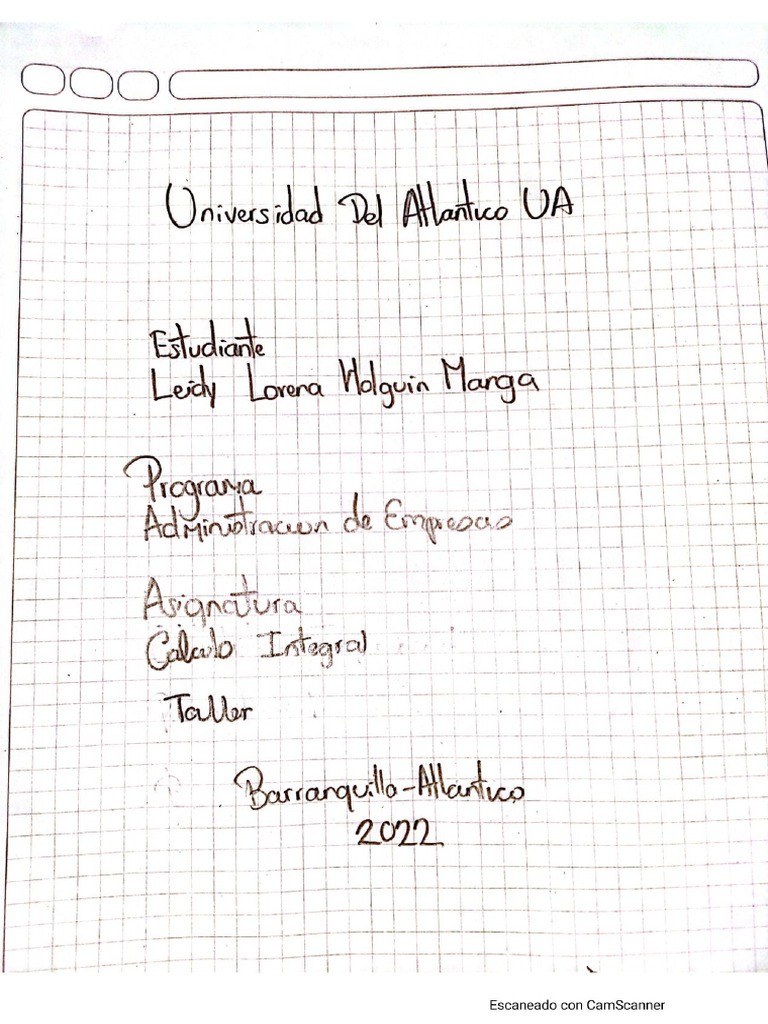 Universidad Del Atlantico UA
Estudiante
Leidy Lorena Holguin Manga
Programa
Administracion de Empresas
Asignatura
Calculo Integral
Taller
Barranquilla-Atlantico
2022
Escaneado con CamScanner